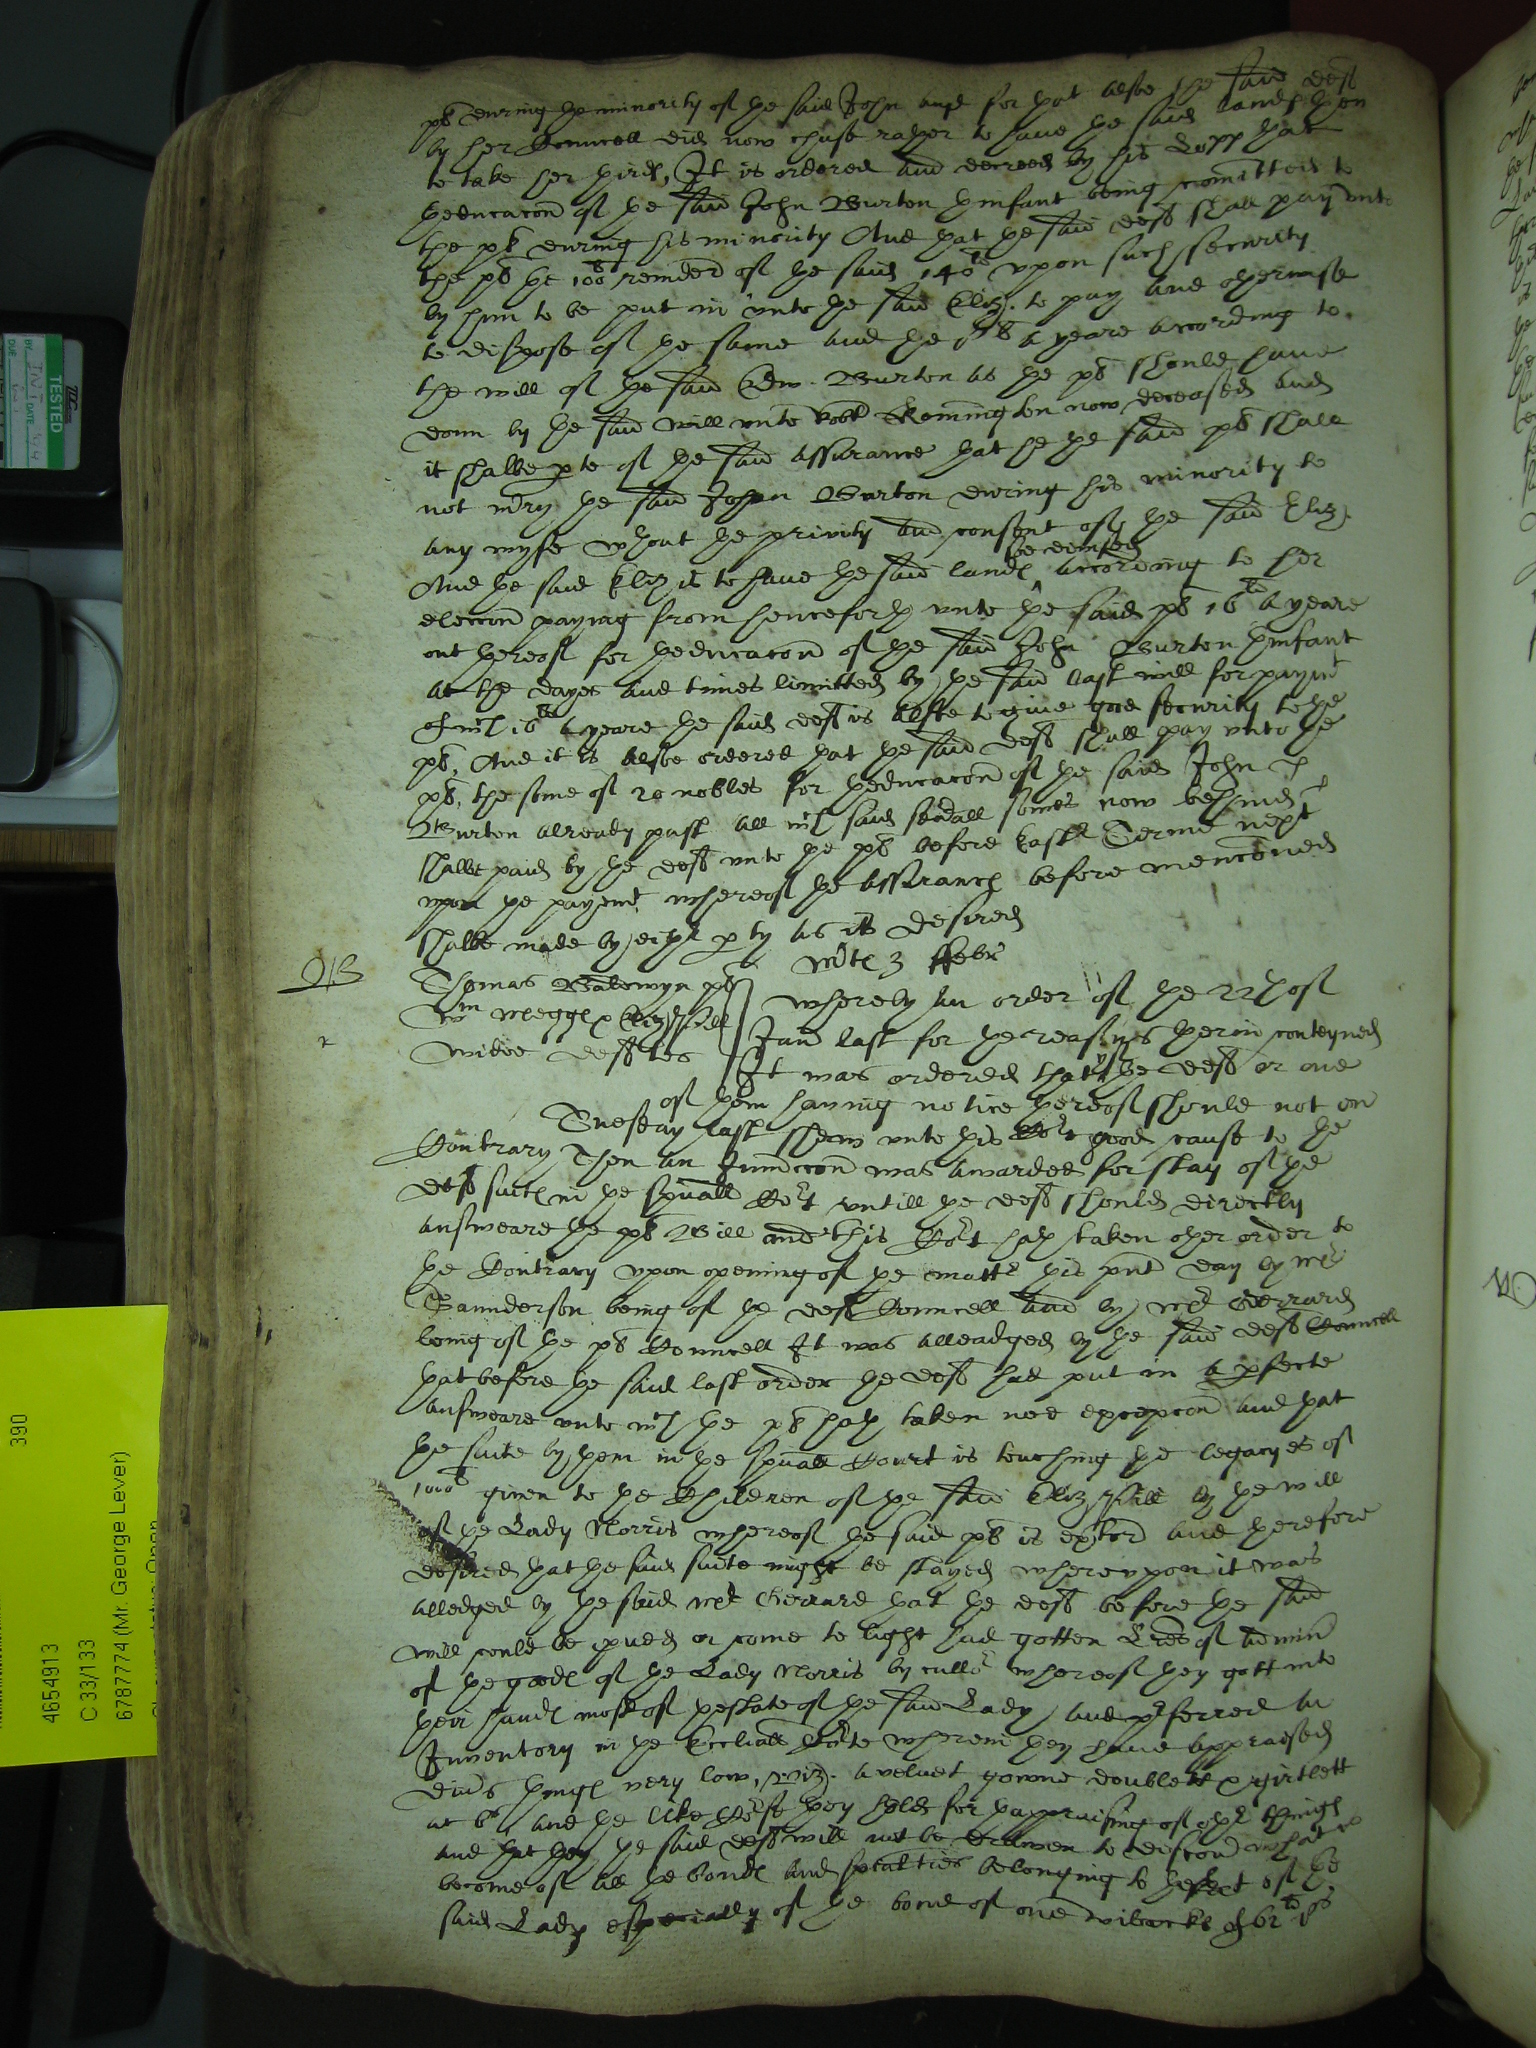 plt during the minority of the said John and for that alsoe the said deft
by her Councell did now chuse rather to have the said lands then
to take her third, It is ordered and decreed by his Lopp that
theducacon of the said John Burton thinfant being comitted to
the plt during his minority And that the said deft shall pay unto
the plt the 100li remainder of the said 140li upon such security
by him to be put in unto the said Eliz. to pay and otherwise
to dispose of the same and the a yeare according to
the will of the said Edw. Burton as the plt should have
donn by the said will unto Robt Remington now deceased and
it shalbe pte of the said assurance that he the said plt shall
not mary the said John Burton during his minority to
any wyfe wthout the privity and consent of the said Eliz.
And the said Eliz is to have the said lands be demised according to her
eleccon paying from henceforth unto the said plt 16li a yeare
out thereof for theducacon of the said John Burton thinfant
at the dayes and times limitted by the said last will for paymt
of wch 16li a yeare the said deft is alsoe to give good security to the
plt, And it is alsoe ordered that the said deft shall pay unto the
plt, the some of 20 nobles for theducacon of the said John
Burton already past all wch said sevall somes now behind
shalbe paid by the deft unto the plt before Easter Terme next
upon the payemt whereof the assurance before menconed
shalbe made by eithr pty as is desired
3 Febr
Thomas Baldwyn plt
Wm Meggs & Eliz Hill
widoe defts
whereby an order of the 22th of
Jan last for the reasons therin conteyned
It was ordered that yf the deft or one
of them having notice thereof should not on
Tuesday last shew unto this Cort good cause to the
Contrary Then an Iniunccon was awarded for stay of the
deft suite in the spuall Cort untill the deft should directly
answeare the plt Bill and this Cort hath taken other order to
the Contrary upon opening of the matter this pnt day by Mr
Saunderson being of the deft Councell and by Mr Gerrard
being of the plt Councell It was alleadged by the said deft Councell
that before the said last order the deft had put in a pfecte
answeare unto wch the plt hath taken noe excepcon and that
the suite by them in the spuall Court is touching the legacyes of
1000li given to the Children of the said Eliz Hill by the will
of the Lady Norris whereof the said plt is extor and therefore
desired that the said suite might be stayed whereupon it was
alledged by the said Mr Gerrard that the deft before the said
will could be pved or come to light had gotten Lres of admin
of the goods of the Lady Norris by cullor whereof they gott into
their hands most of thestate of the said Lady, and pferred an
Inventory in the Eccliall Corte wherein they have appraised
divrs things very low, viz. a velvet gowne doublett & girtlett
at and the like Course they hold for thappraising of othr things
and that they the said deft will not be drawen to discov what is
become of all the bonds and spealties belonging to thestet of the
said Lady especially of the bond of one of 62li
4654913
C 33/133
6787774 (Mr. George Lever)
390
TESTED
DATE
DUE
BY